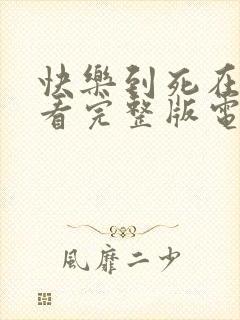 快樂到死在
看完整版電
風靡二少